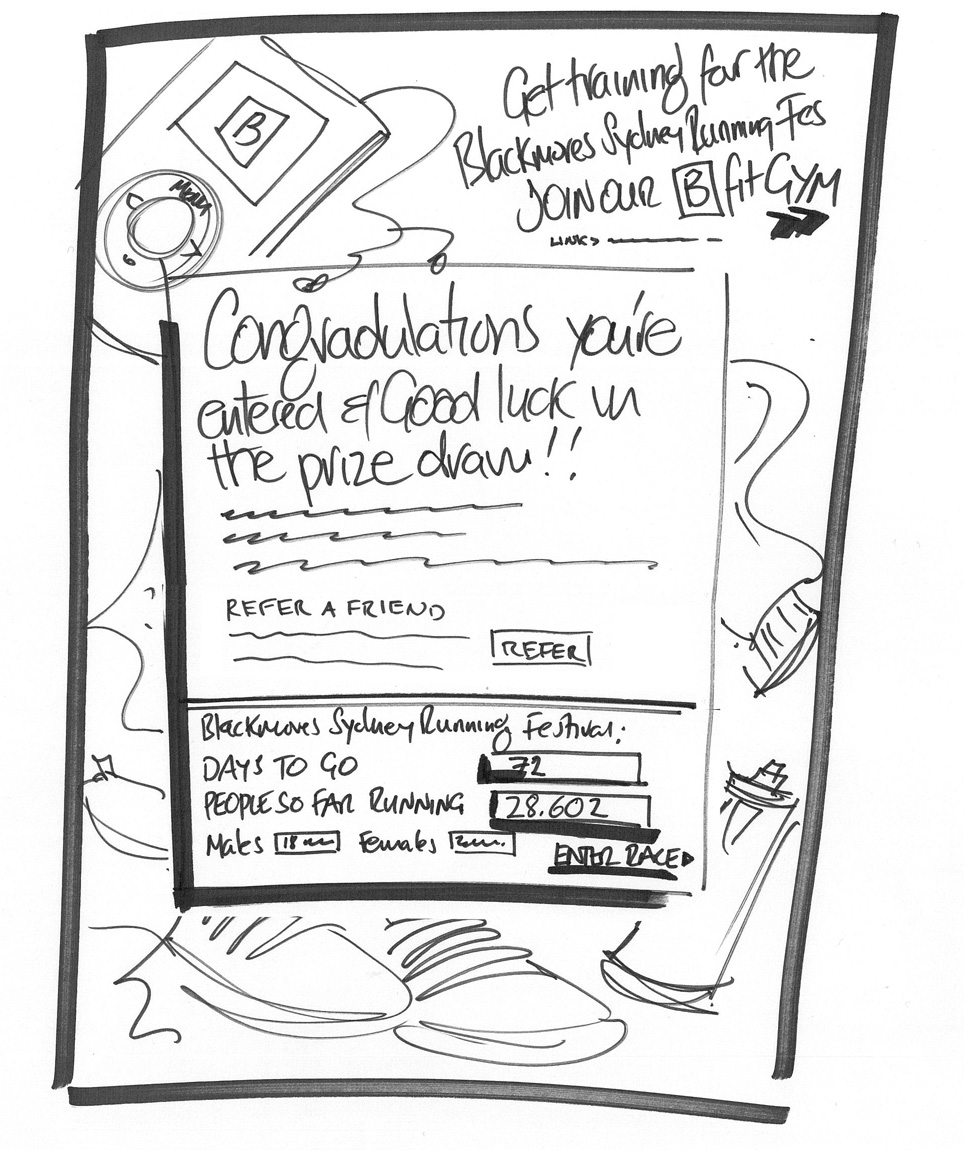 Get training for the
Blackmores Sydney Running Fes
JOIN OUR B fit GYM
LINKS
B
Menu
Congradulations you're
entered & Good luck in
the prize draw!!
REFER A FRIEND
REFER
Blackmores Sydney Running Festival:
DAYS TO GO 72
PEOPLE SO FAR RUNNING 28.602
Males 18 Females
ENTER RACE